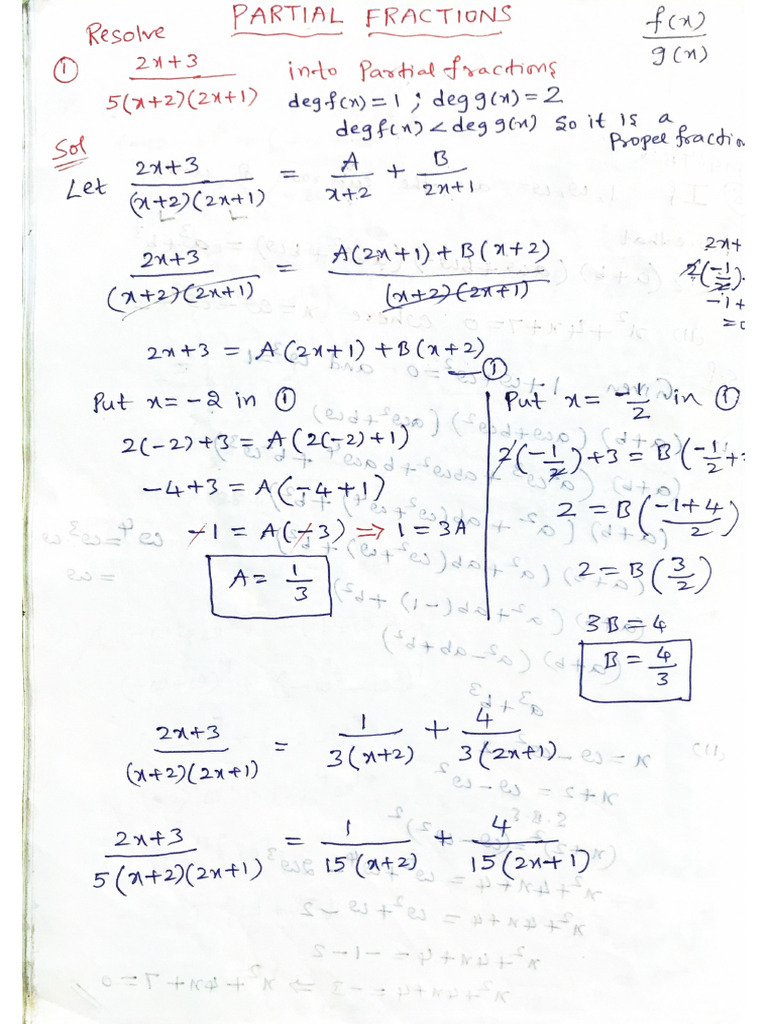 PARTIAL FRACTIONS
f(x)/g(x)
Resolve
① 2x+3 / 5(x+2)(2x+1) into Partial fractions
deg f(x) = 1 ; deg g(x) = 2
deg f(x) < deg g(x) So it is a
Proper fraction
Sol
Let 2x+3 / (x+2)(2x+1) = A / x+2 + B / 2x+1
2x+3 / (x+2)(2x+1) = A(2x+1) + B(x+2) / (x+2)(2x+1)
2x+
2(-1/2)
-1+
=0
2x+3 = A(2x+1) + B(x+2) — ①
Put x = -2 in ①
2(-2)+3 = A(2(-2)+1)
-4+3 = A(-4+1)
-1 = A(-3) ⇒ 1 = 3A
A = 1/3
Put x = -1/2 in ①
2(-1/2)+3 = B(-1/2+
2 = B(-1+4 / 2)
2 = B(3/2)
3B = 4
B = 4/3
2x+3 / (x+2)(2x+1) = 1 / 3(x+2) + 4 / 3(2x+1)
2x+3 / 5(x+2)(2x+1) = 1 / 15(x+2) + 4 / 15(2x+1)